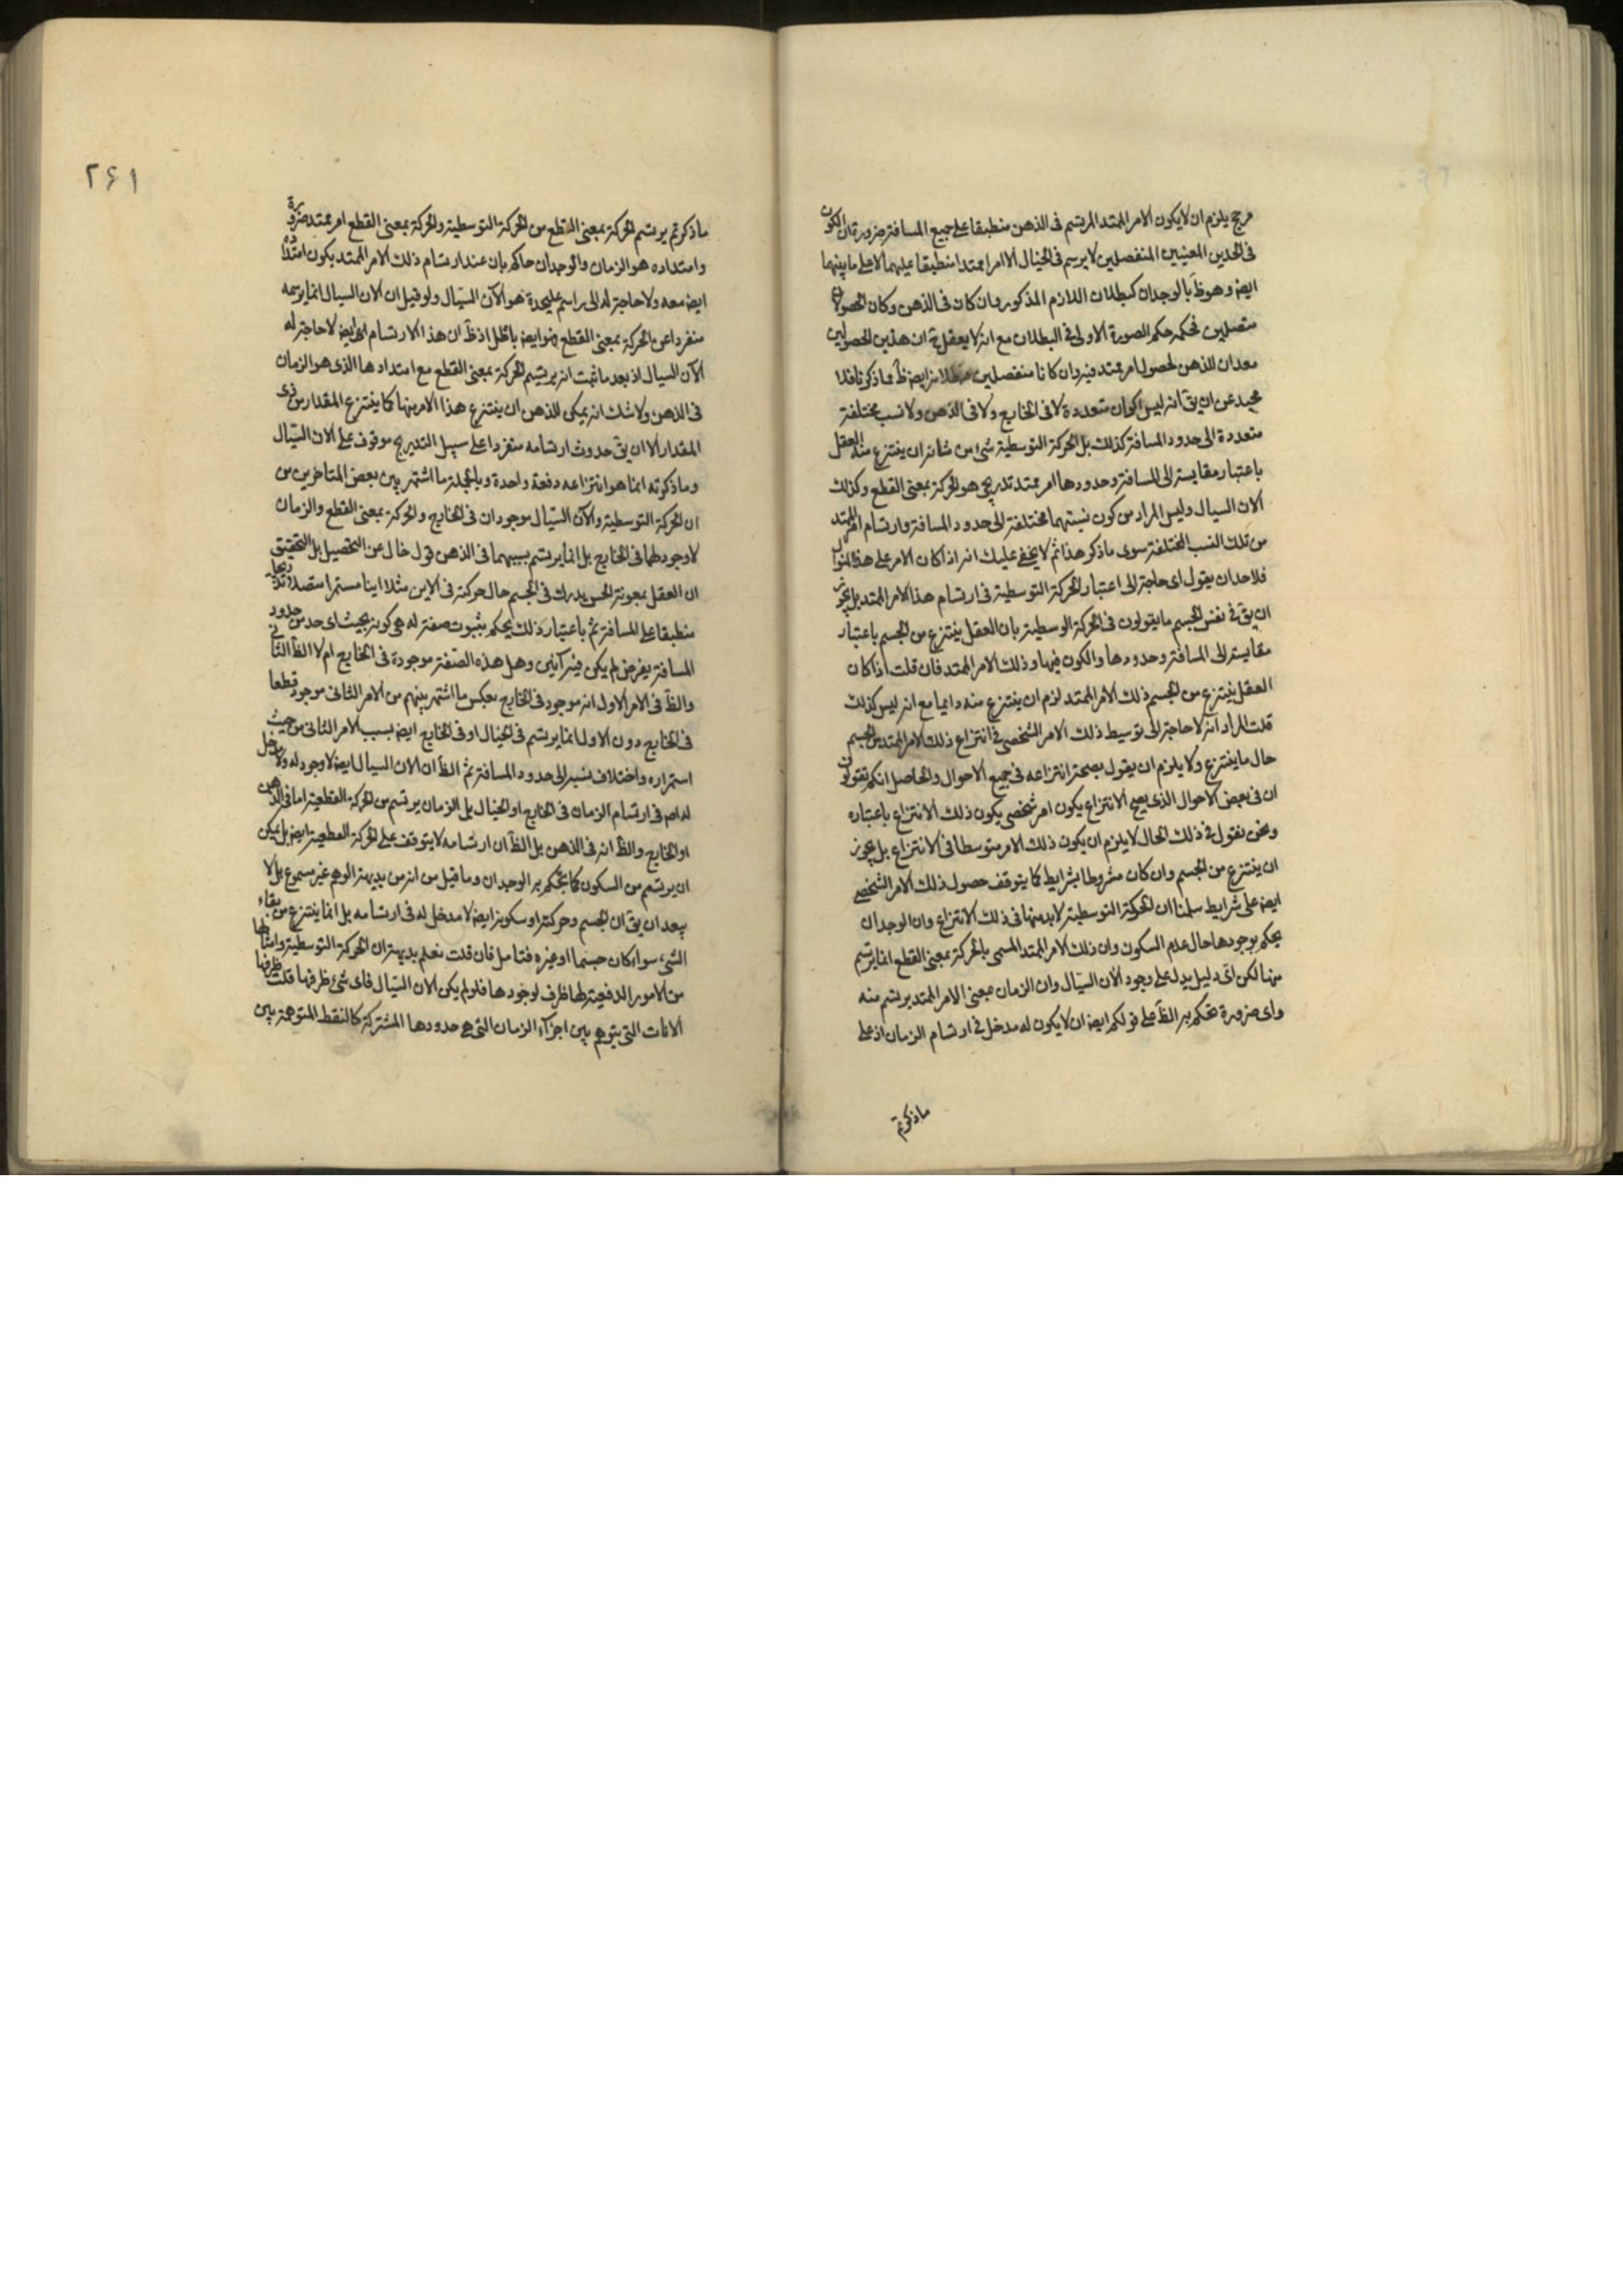 مرجح يلزم ان لا يكون الامر الممتد المرتسم فى الذهن منطبقا على جميع المسافة ضرورة ان الكون
فى الحدين المعينين المنفصلين لا يرسم فى الخيال الا امرا ممتدا منطبقا عليهما لا على ما بينهما
ايضا وهو ظ بالوجدان كبطلان اللازم المذكور وان كان فى الذهن وكان الحصولان
متصلين فحكمه حكم الصورة الاولى فى البطلان مع انه لا يعقل ح ان هذين الحصولين
معدان للذهن لحصول امر ممتد فيه وان كانا منفصلين ايض ظ مما ذكرنا فلا
محيد عن ان يق انه ليس اكوان متعددة لا فى الخارج ولا فى الذهن ولا نسب مختلفة
متعددة الى حدود المسافة كذلك بل الحركة التوسطية شئ من شانه ان ينتزع منه العقل
باعتبار مقايسته الى المسافة وحدودها امر ممتد تدريجى هو الحركة بمعنى القطع وكذلك
الان السيال وليس المراد من كون نسبتهما مختلفة الى حدود المسافة وارتسام امر الممتد
من تلك النسب المختلفة سوى ما ذكر هذا ثم لا يخفى عليك انه اذا كان الامر على هذا المنوال
فلاحد ان يقول اى حاجة الى اعتبار الحركة التوسطية فى ارتسام هذا الامر الممتد بل يجوز
ان يق فى نفس الجسم ما يقولون فى الحركة الوسطية بان العقل ينتزع من الجسم باعتبار
مقايسته الى المسافة وحدودها والكون فيها وذلك الامر الممتد فان قلت اذا كان
العقل ينتزع من الجسم ذلك الامر الممتد لزم ان ينتزع منه دايما مع انه ليس كذلك
قلت المراد انه لا حاجة الى توسيط ذلك الامر الشخصى فى انتزاع ذلك الامر الممتد من الجسم
حال ما ينتزع ولا يلزم ان يقول بصحة انتزاعه فى جميع الاحوال والحاصل انكم تقولون
ان فى بعض الاحوال الذى يصح الانتزاع يكون امر شخصى يكون ذلك الانتزاع باعتباره
ونحن نقول فى ذلك الحال لا يلزم ان يكون ذلك الامر متوسطا فى الانتزاع بل يجوز
ان ينتزع من الجسم وان كان مشروطا بشرايط كما يتوقف حصول ذلك الامر الشخصى
ايض على شرايط سلمنا ان الحركة التوسطية لا بد منها فى ذلك الانتزاع وان الوجدان
يحكم بوجودها حال عدم السكون وان ذلك الامر الممتد المسمى بالحركة بمعنى القطع انما يرتسم
منها لكن اى دليل يدل على وجود الان السيال وان الزمان بمعنى الامر الممتد يرتسم منه
واى ضرورة تحكم به الظ على قولكم ايض ان لا يكون له مدخل فى ارتسام الزمان اذ على
ماذكرتم
٢٦١
ماذكرتم يرتسم الحركة بمعنى القطع من الحركة التوسطية والحركة بمعنى القطع امر ممتد ضرورة
وامتداده هو الزمان والوجدان حاكم بان عند ارتسام ذلك الامر الممتد يكون امتداده
ايض معه ولا حاجة له الى راسم عليحدة هو الآن السيال ولو قيل ان الان السيال انما يرسمه
منفردا عن الحركة بمعنى القطع فهو ايض باطل اذ ظ ان هذا الارتسام ايض لا حاجة له
الى الآن السيال اذ بعد ما ثبت انه يرتسم الحركة بمعنى القطع مع امتدادها الذى هو الزمان
فى الذهن ولا شك انه يمكن للذهن ان ينتزع هذا الامر منها كما ينتزع المقدار من ذى
المقدار الا ان يق حدوث ارتسامه منفردا على سبيل التدريج موقوف على الان السيال
وما ذكرته انما هو انتزاعه دفعة واحدة وبالجملة ما اشتهر بين بعض المتاخرين من
ان الحركة التوسطية والآن السيال موجودان فى الخارج والحركة بمعنى القطع والزمان
لا وجود لهما فى الخارج بل انما يرتسم بسببهما فى الذهن قول خال عن التحصيل بل التحقيق
ان العقل بمعونة الحس يدرك فى الجسم حال حركته فى الاين مثلا اينا مستمرا متصلا تدريجيا
منطبقا على المسافة ثم باعتبار ذلك يحكم بثبوت صفة له هى كونه بحيث اى حد من حدود
المسافة يفرض لم يكن فيه آنين وهل هذه الصفة موجودة فى الخارج ام لا الظ الثانى
والظ فى الامر الاول انه موجود فى الخارج بعكس ما اشتهر بينهم من الامر الثانى موجود قطعا
فى الخارج دون الاول انما يرتسم فى الخيال او فى الخارج ايض بسبب الامر الثانى من حيث
استمراره واختلاف نسبه الى حدود المسافة ثم الظ ان الان السيال ايض لا وجود له ولا مدخل
له اصلا فى ارتسام الزمان فى الخارج او الخيال بل الزمان يرتسم من الحركة القطعية اما فى الذهن
او الخارج والظ انه فى الذهن بل الظ ان ارتسامه لا يتوقف على الحركة القطعية ايض بل يمكن
ان يرتسم من السكون كما يحكم به الوجدان وما قيل من انه من بديهة الوهم غير مسموع بل لا
يبعد ان يق ان الجسم وحركته او سكونه ايض لا مدخل له فى ارتسامه بل انما ينتزع من بقاء
الشئ سواء كان جسما او غيره فتامل فان قلت نعلم بديهة ان الحركة التوسطية وامثالها
من الامور الدفعية لها ظرف لوجودها فلو لم يكن الان السيال فاى شئ ظرفها قلت ظرفها
الانات التى يتوهم بين اجزاء الزمان التى هى حدودها المشتركة كالنقط المتوهمة بين